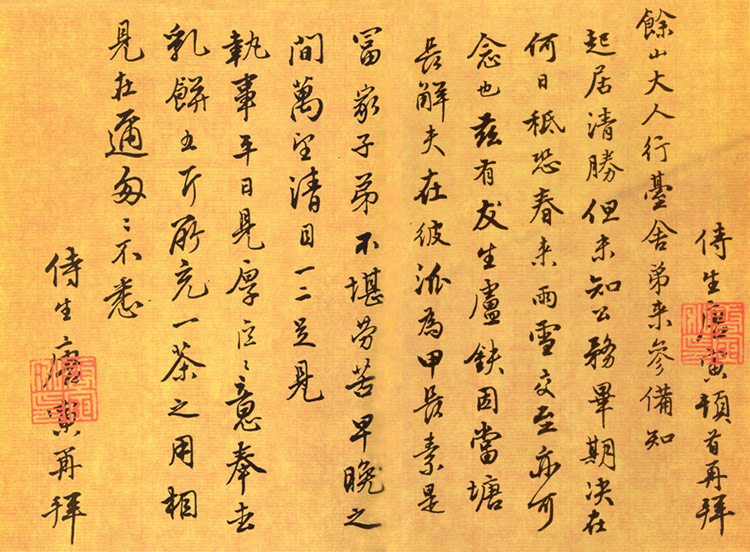 侍生唐寅頓首再拜
餘山大人行臺舍弟來參備知
起居清勝但未知公務畢期决在
何日秪恐春來雨雪交至亦可
念也茲有友生盧鉄因當塘
長解夫在彼派為甲長素是
冨家子弟不堪劳苦早晚之
間萬望清目一二足見
執事平日見厚區〻意奉去
乳餅五斤所充一茶之用相
見在邇匆〻不悉
侍生唐寅再拜